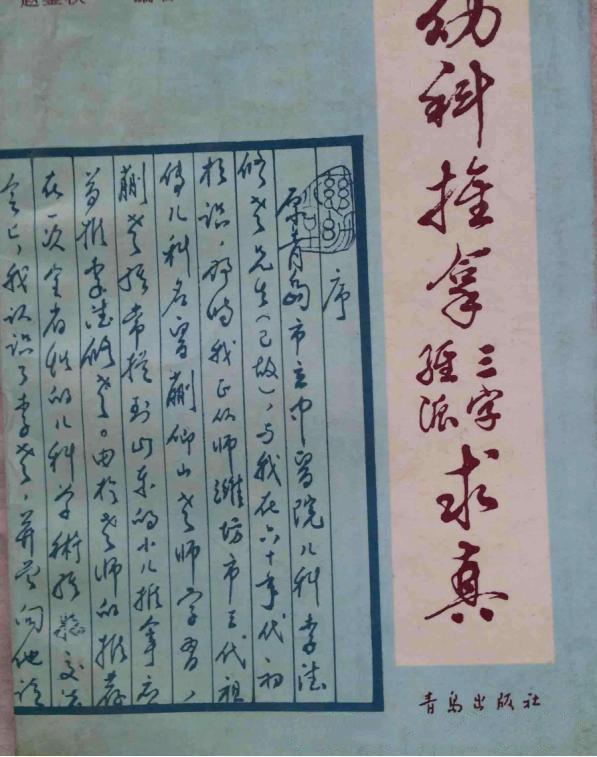 幼科推拿
三字
经派
求真
青岛出版社
序
原青岛市立中医院儿科李德
修老先生(已故),与我在六十年代初
相识,那时我正从师潍坊市三代祖
传儿科名医蒯仰山老师学习,
蒯老经常提到山东的小儿推拿应
首推李德修老。由于老师的推荐
在一次全省性的儿科学術经验交流
会上,我认识了李老,并曾向他